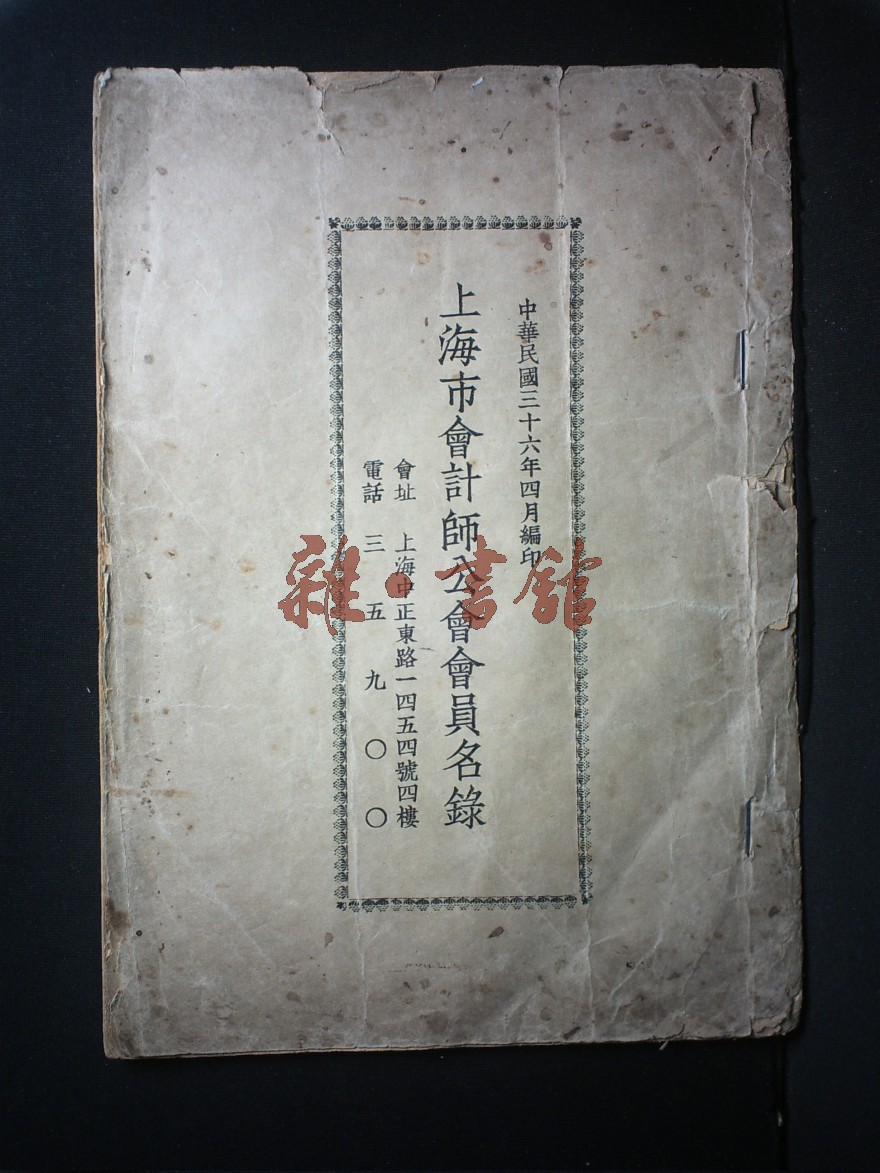 中華民國三十六年四月編印
上海市會計師公會會員名錄
會址 上海中正東路一四五四號四樓
電話 三五九〇〇
雜·書館